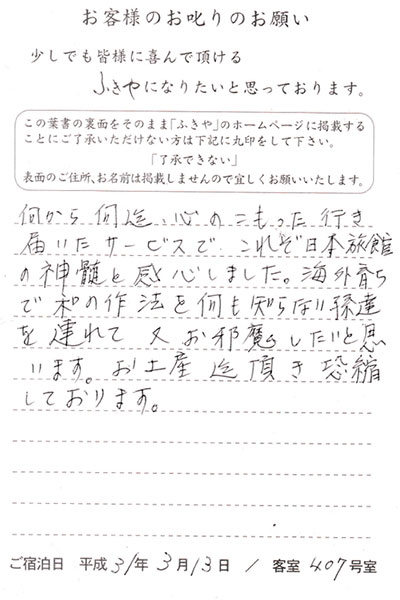 お客様のお叱りのお願い
少しでも皆様に喜んで頂ける
ふきやになりたいと思っております。
この葉書の裏面をそのまま「ふきや」のホームページに掲載する
ことにご了承いただけない方は下記に丸印をして下さい。
「了承できない」
表面のご住所、お名前は掲載しませんので宜しくお願いいたします。
何から何迄、心のこもった行き
届いたサービスで、これぞ日本旅館
の神髄と感心しました。海外育ち
で和の作法を何も知らない孫達
を連れて又お邪魔したいと思
います。お土産迄頂き恐縮
しております。
ご宿泊日 平成31年3月13日 / 客室407号室